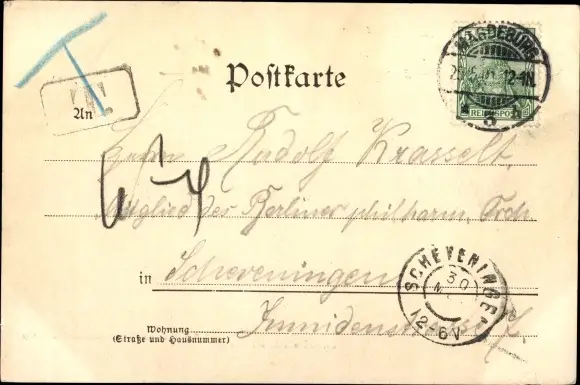 Postkarte
MAGDEBURG
12-1N.
REICHSPOST
3
An
Herrn Rudolf Krasselt,
Mitglied der Berliner philharm. Orch
in Scheveningen
SCHEVENINGEN
30
12-6V
Wohnung
(Straße und Hausnummer)